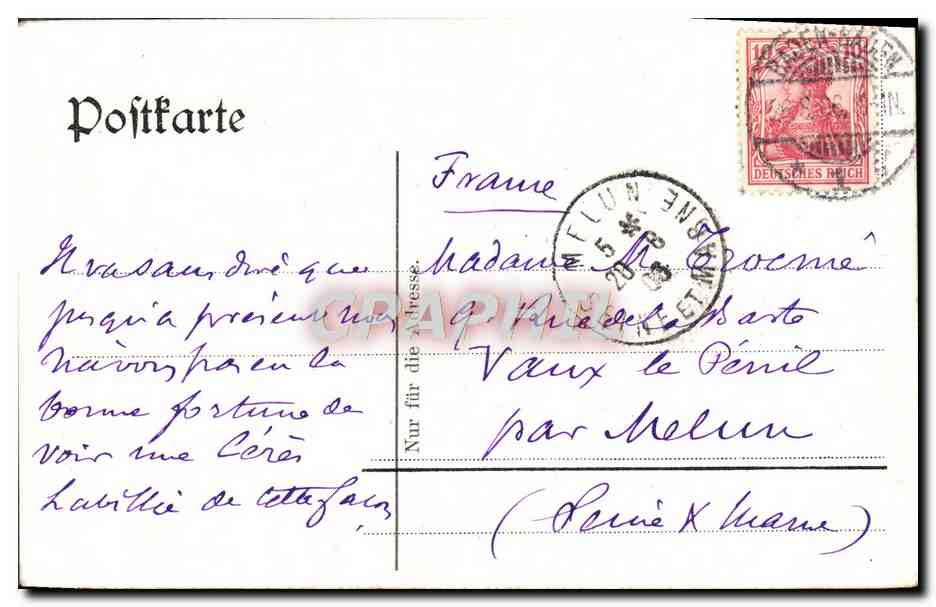 Postkarte
10 10
BADEN-BADEN
DEUTSCHES REICH
France
MELUN
5 * 8
20 08
SEINE ET MARNE
Il va sans dire que
jusqu'à présent nous
n'avons pas eu la
bonne fortune de
voir une Cérès
habillée de cette façon
Nur für die Adresse.
Madame M. Trocmé
9. Rue de la Barte
Vaux le Pénil
par Melun
(Seine & Marne)